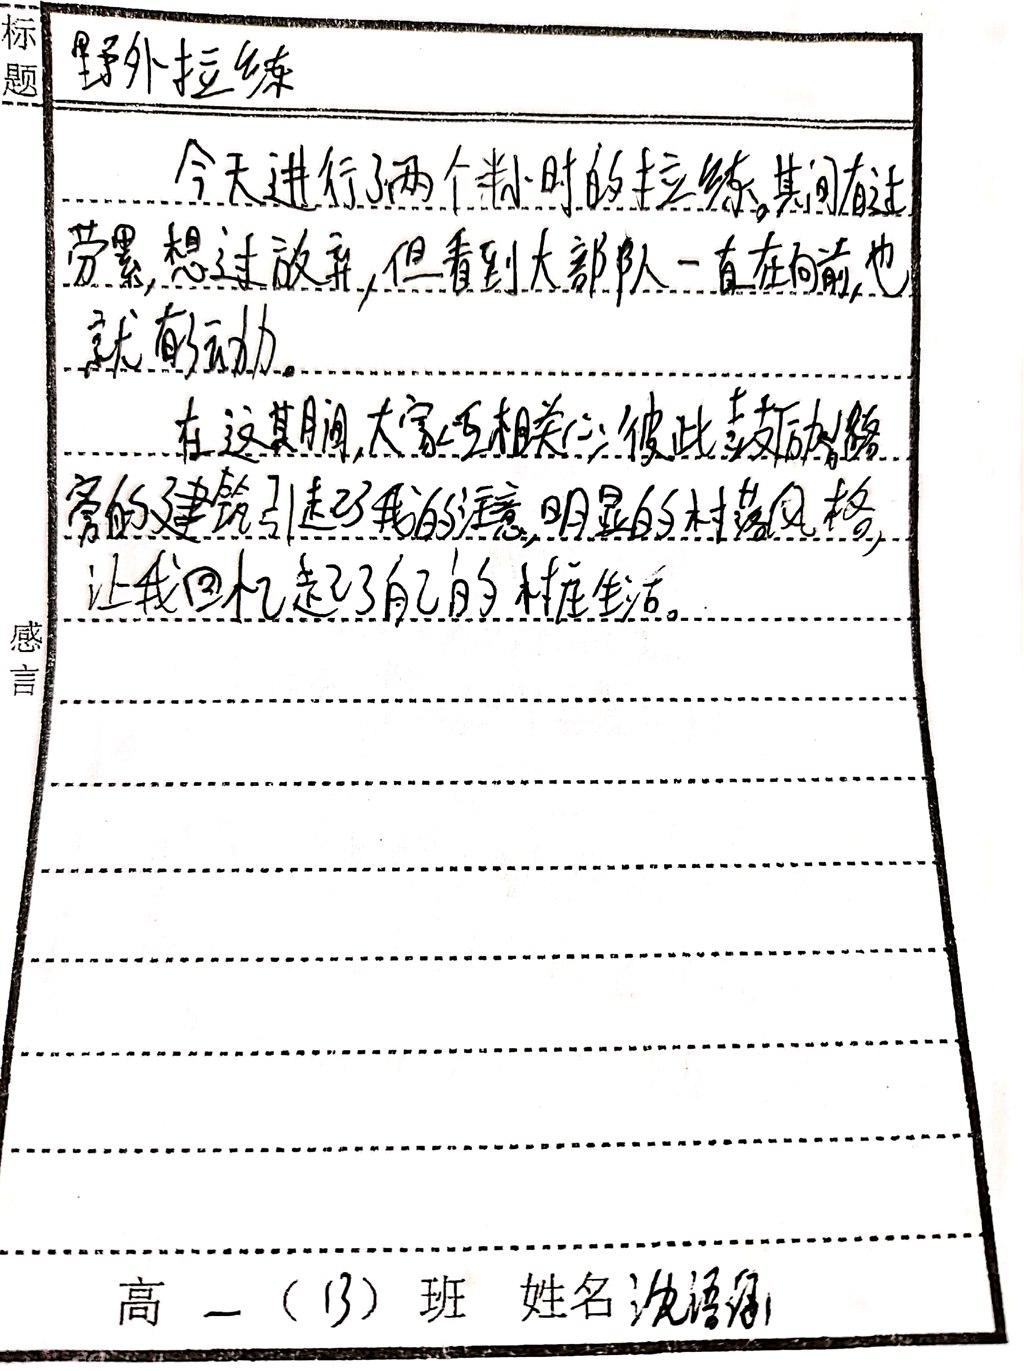 标题
野外拉练
今天进行了两个半小时的拉练。其间有过
劳累,想过放弃,但看到大部队一直在向前,也
就有了动力。
在这其期间,大家互相关心,彼此鼓励。路
旁的建筑引起了我的注意,明显的村落风格,
让我回忆起了自己的村庄生活。
感言
高一(13)班 姓名 沈语